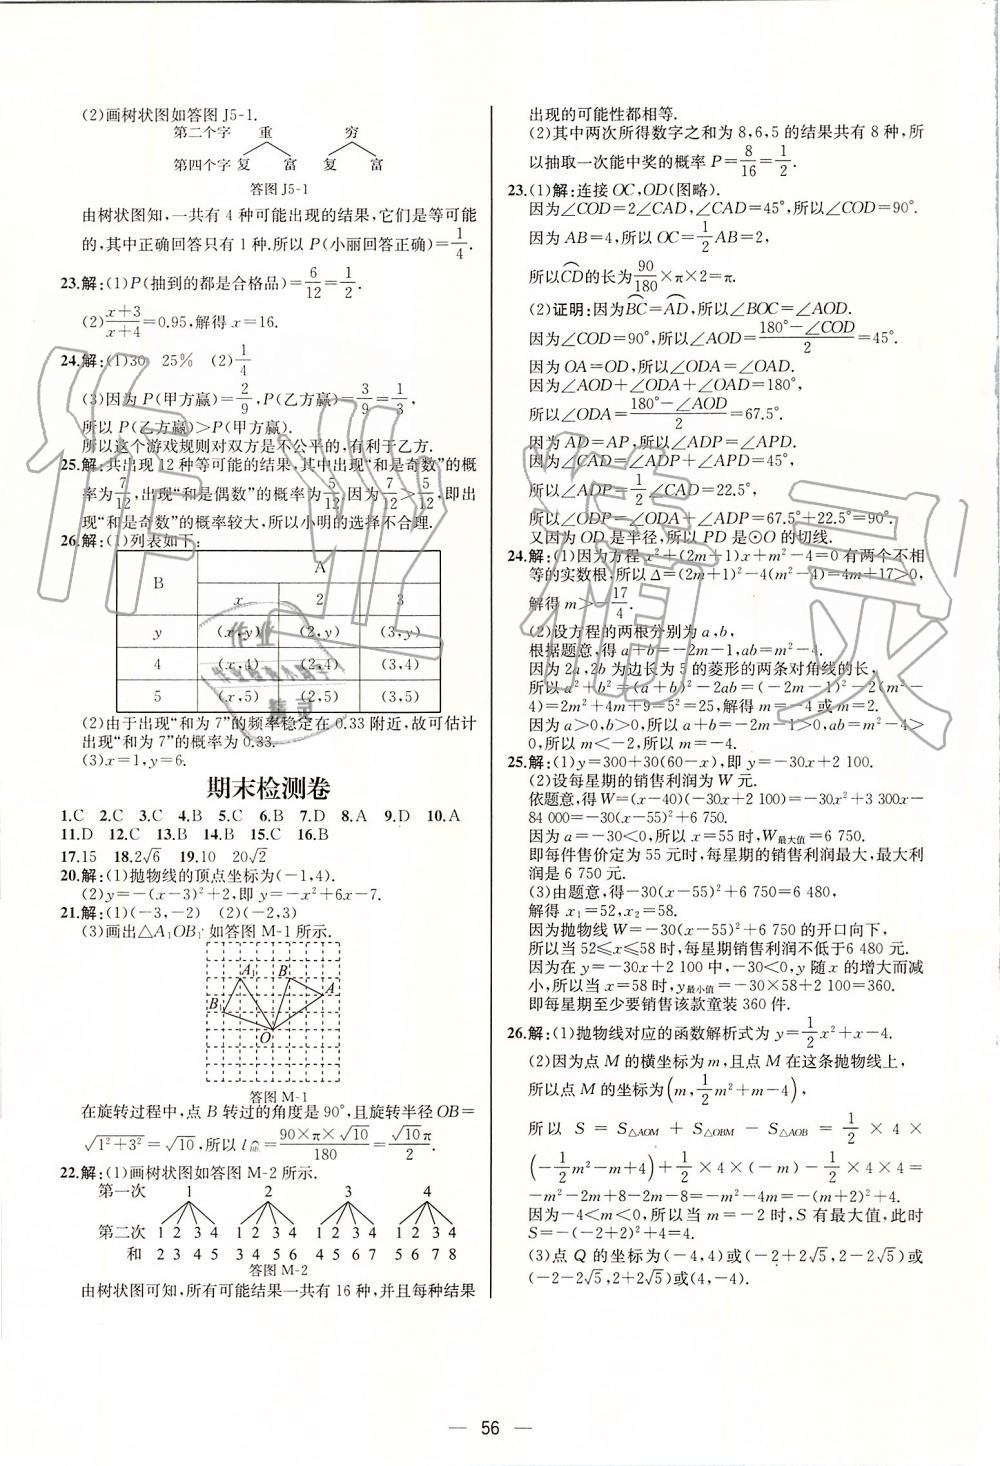 (2)画树状图如答图 J5-1.
第二个字 重 穷
第四个字 复 富 复 富
答图 J5-1
由树状图知,一共有 4 种可能出现的结果,它们是等可能
的,其中正确回答只有 1 种.所以 P(小丽回答正确)=1/4.
23.解:(1)P(抽到的都是合格品)=6/12=1/2.
(2)(x+3)/(x+4)=0.95,解得 x=16.
24.解:(1)30 25% (2)1/4
(3)因为 P(甲方赢)=2/9,P(乙方赢)=3/9=1/3,
所以 P(乙方赢)>P(甲方赢).
所以这个游戏规则对双方是不公平的,有利于乙方.
25.解:共出现 12 种等可能的结果,其中出现“和是奇数”的概
率为7/12,出现“和是偶数”的概率为5/12,因为7/12>5/12,即出
现“和是奇数”的概率较大,所以小明的选择不合理.
26.解:(1)列表如下:
B A
x 2 3
y (x,y) (2,y) (3,y)
4 (x,4) (2,4) (3,4)
5 (x,5) (2,5) (3,5)
(2)由于出现“和为 7”的频率稳定在 0.33 附近,故可估计
出现“和为 7”的概率为 0.33.
(3)x=1,y=6.
期末检测卷
1.C 2.C 3.C 4.B 5.C 6.B 7.D 8.A 9.D 10.A
11.D 12.C 13.B 14.B 15.C 16.B
17.15 18.2√6 19.10 20√2
20.解:(1)抛物线的顶点坐标为(-1,4).
(2)y=-(x-3)²+2,即 y=-x²+6x-7.
21.解:(1)(-3,-2) (2)(-2,3)
(3)画出△A₁OB₁,如答图 M-1 所示.
A₁ B
A
B₁
O
答图 M-1
在旋转过程中,点 B 转过的角度是 90°,且旋转半径 OB=
√(1²+3²)=√10,所以 l=(90×π×√10)/180=(√10π)/2.
22.解:(1)画树状图如答图 M-2 所示.
第一次 1 2 3 4
第二次 1 2 3 4 1 2 3 4 1 2 3 4 1 2 3 4
和 2 3 4 5 3 4 5 6 4 5 6 7 5 6 7 8
答图 M-2
由树状图可知,所有可能结果一共有 16 种,并且每种结果
出现的可能性都相等.
(2)其中两次所得数字之和为 8,6,5 的结果共有 8 种,所
以抽取一次能中奖的概率 P=8/16=1/2.
23.(1)解:连接 OC,OD(图略).
因为∠COD=2∠CAD,∠CAD=45°,所以∠COD=90°.
因为 AB=4,所以 OC=1/2AB=2,
所以⌒CD的长为90/180×π×2=π.
(2)证明:因为⌒BC=⌒AD,所以∠BOC=∠AOD.
因为∠COD=90°,所以∠AOD=(180°-∠COD)/2=45°.
因为 OA=OD,所以∠ODA=∠OAD.
因为∠AOD+∠ODA+∠OAD=180°,
所以∠ODA=(180°-∠AOD)/2=67.5°.
因为 AD=AP,所以∠ADP=∠APD.
因为∠CAD=∠ADP+∠APD=45°,
所以∠ADP=1/2∠CAD=22.5°,
所以∠ODP=∠ODA+∠ADP=67.5°+22.5°=90°.
又因为 OD 是半径,所以 PD 是⊙O 的切线.
24.解:(1)因为方程 x²+(2m+1)x+m²-4=0 有两个不相
等的实数根,所以 Δ=(2m+1)²-4(m²-4)=4m+17>0,
解得 m>-17/4.
(2)设方程的两根分别为 a,b,
根据题意,得 a+b=-2m-1,ab=m²-4.
因为 2a,2b 为边长为 5 的菱形的两条对角线的长,
所以 a²+b²=(a+b)²-2ab=(-2m-1)²-2(m²-
4)=2m²+4m+9=5²=25,解得 m=-4 或 m=2.
因为 a>0,b>0,所以 a+b=-2m-1>0,ab=m²-4>
0,所以 m<-2,所以 m=-4.
25.解:(1)y=300+30(60-x),即 y=-30x+2 100.
(2)设每星期的销售利润为 W 元.
依题意,得 W=(x-40)(-30x+2 100)=-30x²+3 300x-
84 000=-30(x-55)²+6 750.
因为 a=-30<0,所以 x=55 时,W最大值=6 750.
即每件售价定为 55 元时,每星期的销售利润最大,最大利
润是 6 750 元.
(3)由题意,得-30(x-55)²+6 750=6 480,
解得 x₁=52,x₂=58.
因为抛物线 W=-30(x-55)²+6 750 的开口向下,
所以当 52≤x≤58 时,每星期销售利润不低于 6 480 元.
因为在 y=-30x+2 100 中,-30<0,y 随 x 的增大而减
小,所以当 x=58 时,y最小值=-30×58+2 100=360.
即每星期至少要销售该款童装 360 件.
26.解:(1)抛物线对应的函数解析式为 y=1/2x²+x-4.
(2)因为点 M 的横坐标为 m,且点 M 在这条抛物线上,
所以点 M 的坐标为(m,1/2m²+m-4),
所以 S = S△AOM + S△OBM - S△AOB = 1/2 × 4 ×
(-1/2m²-m+4)+1/2×4×(-m)-1/2×4×4=
-m²-2m+8-2m-8=-m²-4m=-(m+2)²+4.
因为-4<m<0,所以当 m=-2 时,S 有最大值,此时
S=-(-2+2)²+4=4.
(3)点 Q 的坐标为(-4,4)或(-2+2√5,2-2√5)或
(-2-2√5,2+2√5)或(4,-4).
56
作业精灵